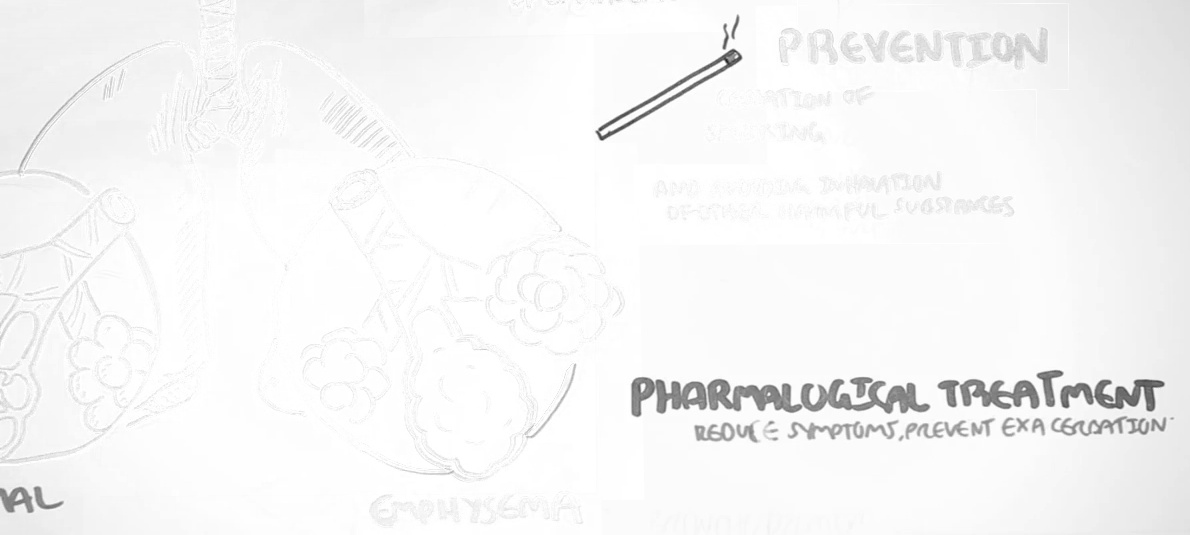 PREVENTION
CESSATION OF
SMOKING
AND AVOIDING INHALATION
OF OTHER HARMFUL SUBSTANCES
PHARMALOGICAL TREATMENT
REDUCE SYMPTOMS, PREVENT EXACERBATION
EMPHYSEMA